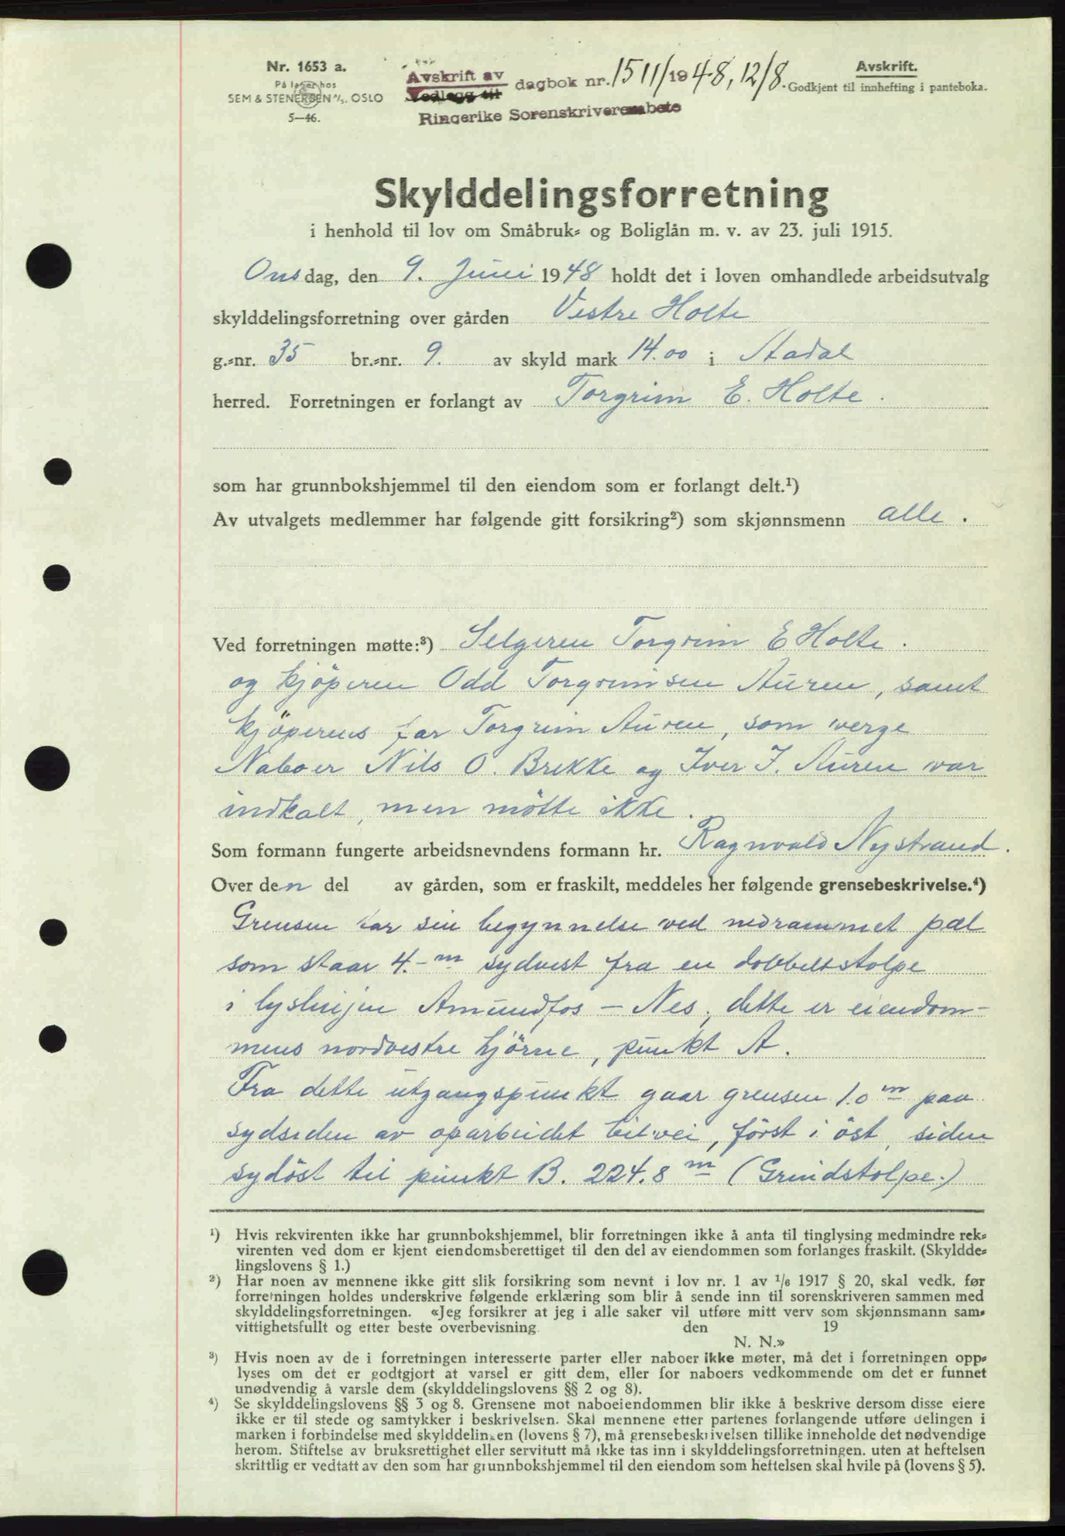 Nr. 1653 a.
På lager hos
SEM & STENERSEN A/S. OSLO
5—46.
Avskrift av
Vedlegg til
dagbok nr. 1511/1948, 12/8.
Ringerike Sorenskriverembete
Avskrift.
Godkjent til innhefting i panteboka.
Skylddelingsforretning
i henhold til lov om Småbruk- og Boliglån m. v. av 23. juli 1915.
Onsdag, den 9. Juni 1948 holdt det i loven omhandlede arbeidsutvalg
skylddelingsforretning over gården Vestre Holte
g.-nr. 35 br.-nr. 9. av skyld mark 14.00 i Aadal
herred. Forretningen er forlangt av Torgrim E. Holte.
som har grunnbokshjemmel til den eiendom som er forlangt delt.¹)
Av utvalgets medlemmer har følgende gitt forsikring²) som skjønnsmenn alle.
Ved forretningen møtte:³) Selgeren Torgrim E Holte.
og kjöperen Odd Torgrimsen Auren, samt
kjöperens far Torgrim Auren, som verge
Naboer Nils O. Brekke og Iver I. Auren var
indkalt, men mötte ikke.
Som formann fungerte arbeidsnevndens formann hr. Ragnvald Nystrand.
Over den del av gården, som er fraskilt, meddeles her følgende grensebeskrivelse.⁴)
Grensen tar sin begynnelse ved nedrammet pæl
som staar 4.- m sydvest fra en dobbeltstolpe
i lyslinjen Amundfos - Nes, dette er eiendom-
mens nordvestre hjörne, punkt A.
Fra dette utgangspunkt gaar grensen 1.0 m paa
sydsiden av oparbeidet bilvei, först i öst, siden
sydöst til punkt B. 224.8 m (Grindstolpe.)
¹) Hvis rekvirenten ikke har grunnbokshjemmel, blir forretningen ikke å anta til tinglysing medmindre rek-
virenten ved dom er kjent eiendomsberettiget til den del av eiendommen som forlanges fraskilt. (Skyldde-
lingslovens § 1.)
²) Har noen av mennene ikke gitt slik forsikring som nevnt i lov nr. 1 av 1/6 1917 § 20, skal vedk. før
forretningen holdes underskrive følgende erklæring som blir å sende inn til sorenskriveren sammen med
skylddelingsforretningen. «Jeg forsikrer at jeg i alle saker vil utføre mitt verv som skjønnsmann sam-
vittighetsfullt og etter beste overbevisning. den 19
N. N.»
³) Hvis noen av de i forretningen interesserte parter eller naboer ikke møter, må det i forretningen opp-
lyses om det er godtgjort at varsel er gitt dem, eller for naboers vedkommende om det er funnet
unødvendig å varsle dem (skylddelingslovens §§ 2 og 8).
⁴) Se skylddelingslovens §§ 3 og 8. Grensene mot naboeiendommen blir ikke å beskrive dersom disse eiere
ikke er til stede og samtykker i beskrivelsen. Skal mennene etter partenes forlangende utføre delingen i
marken i forbindelse med skylddelingen (lovens § 7), må grensebeskrivelsen tillike inneholde det nødvendige
herom. Stiftelse av bruksrettighet eller servitutt må ikke tas inn i skylddelingsforretningen, uten at heftelsen
skriftlig er vedtatt av den som har grunnbokshjemmel til den eiendom som heftelsen skal hvile på (lovens § 5).